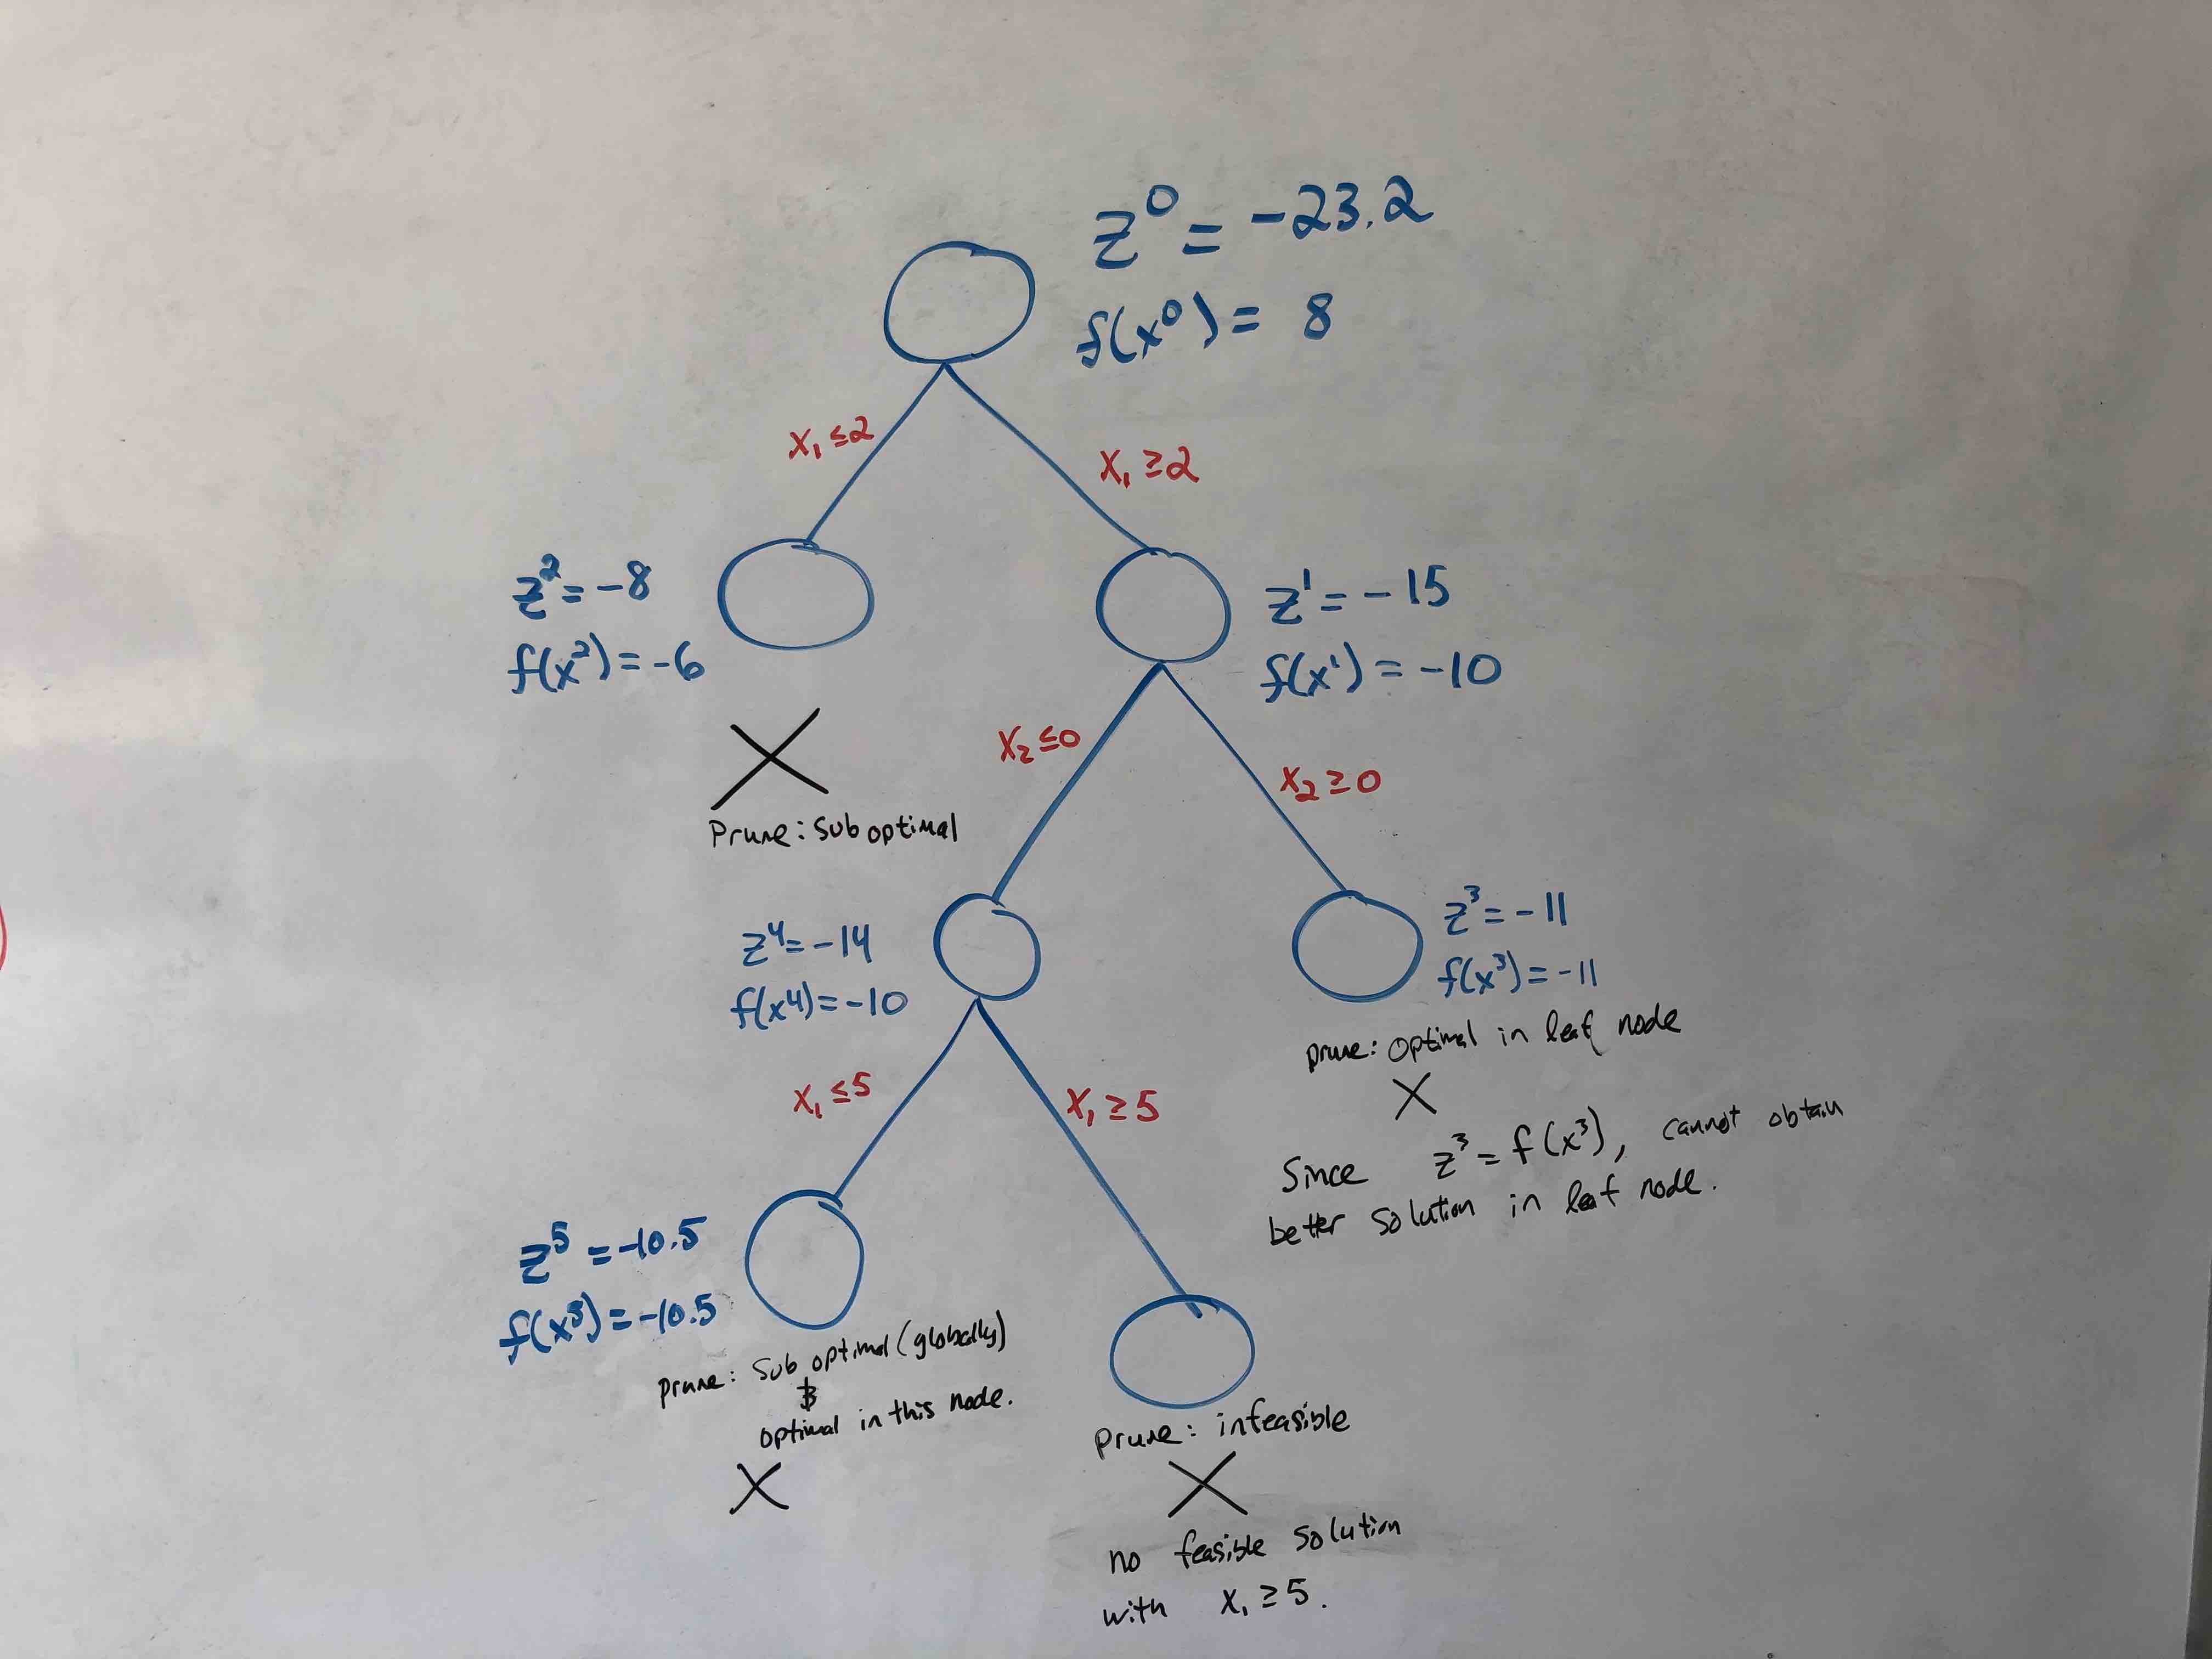 z⁰ = -23.2
f(x⁰) = 8
x₁ ≤ 2
x₁ ≥ 2
z² = -8
f(x²) = -6
z¹ = -15
f(x¹) = -10
Prune: Sub optimal
x₂ ≤ 0
x₂ ≥ 0
z⁴ = -14
f(x⁴) = -10
z³ = -11
f(x³) = -11
prune: optimal in leaf node
Since z³ = f(x³), cannot obtain
better solution in leaf node.
x₁ ≤ 5
x₁ ≥ 5
z⁵ = -10.5
f(x³) = -10.5
prune: Sub optimal (globally)
&
optimal in this node.
prune: infeasible
no feasible solution
with x₁ ≥ 5.